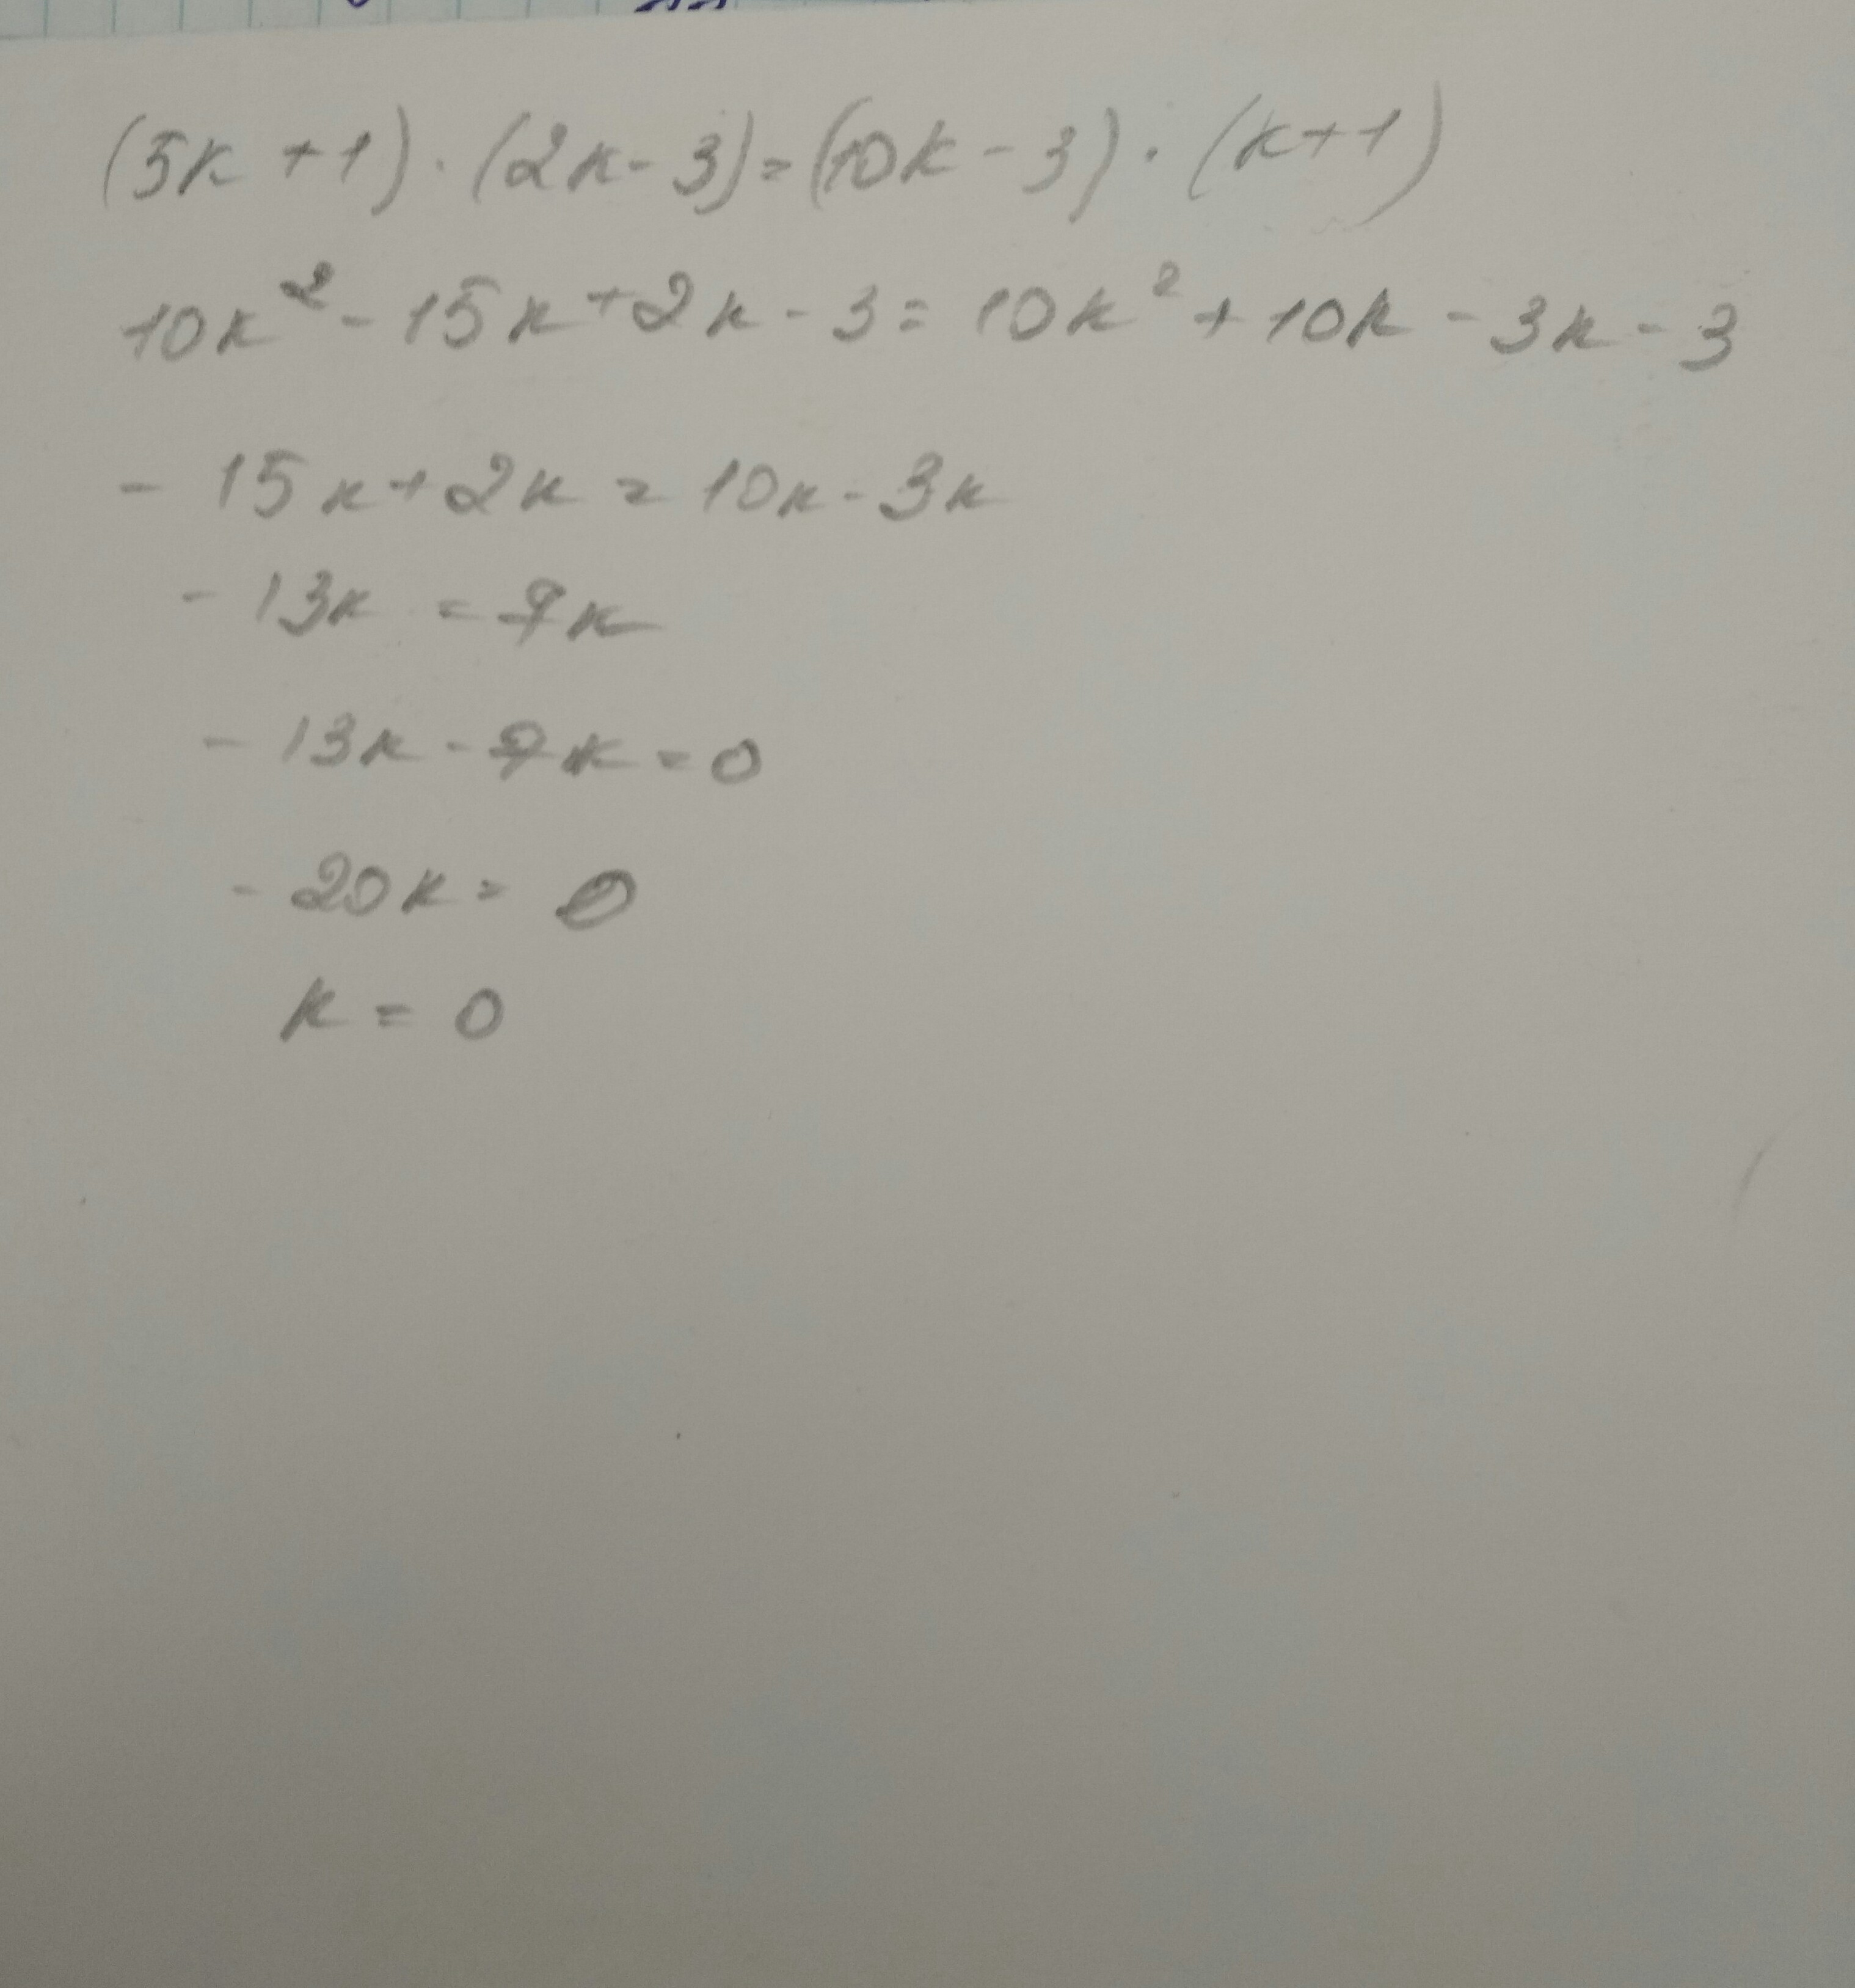 (5k + 1) · (2k - 3) = (10k - 3) · (k + 1)
10k² - 15k + 2k - 3 = 10k² + 10k - 3k - 3
- 15k + 2k = 10k - 3k
- 13k = 7k
- 13k - 7k = 0
- 20k = 0
k = 0